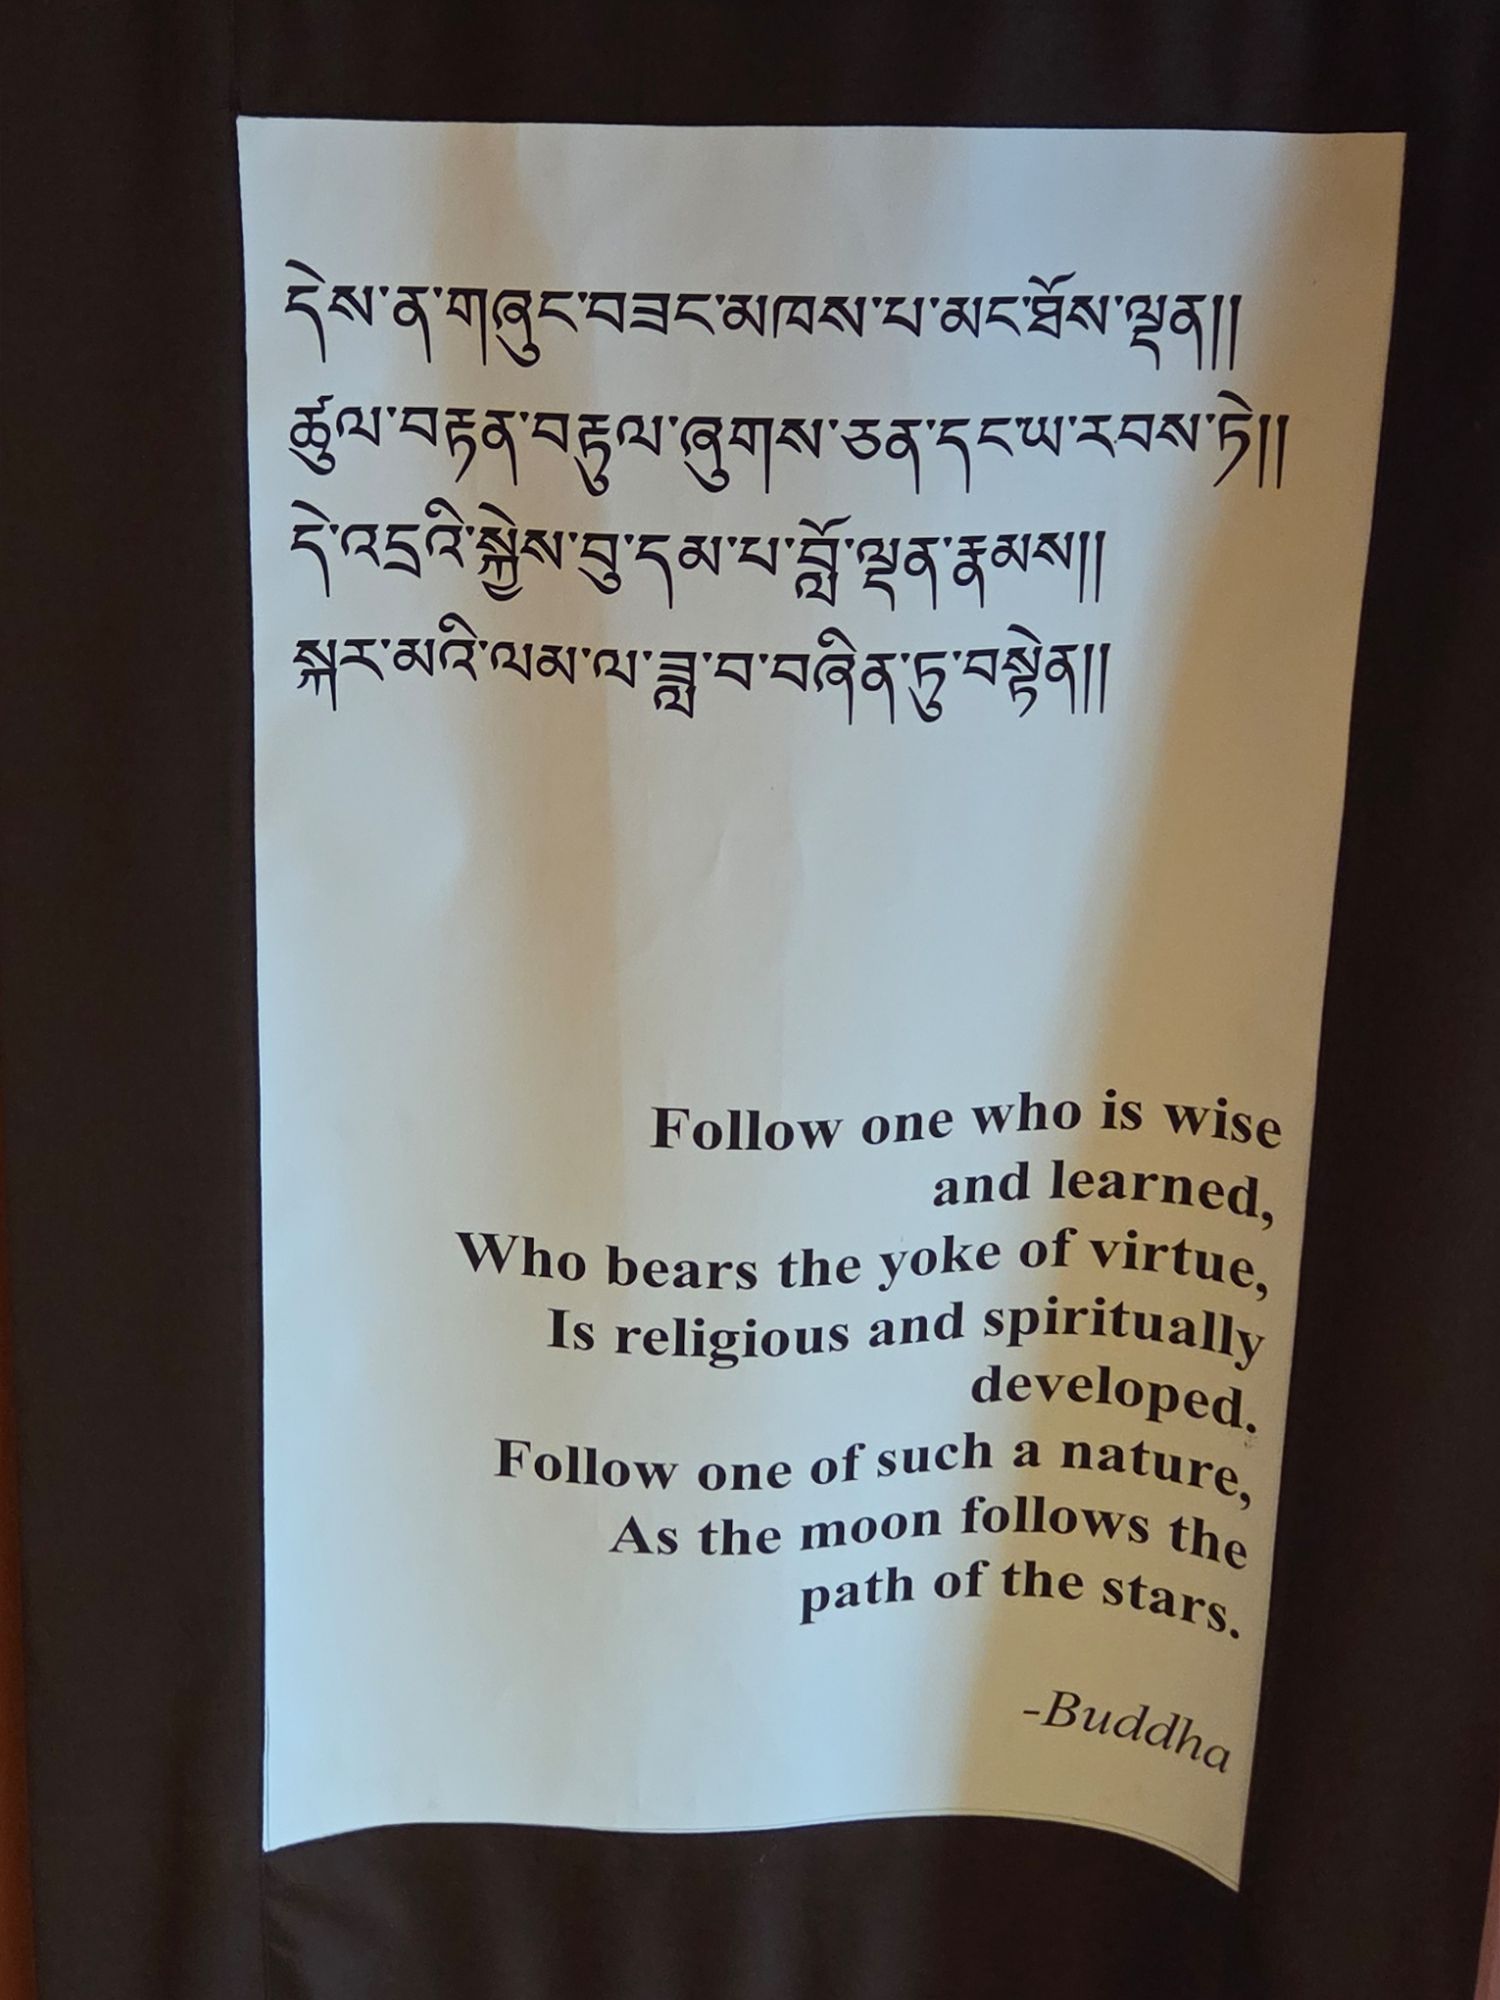 དེས་ན་གཞུང་བཟང་མཁས་པ་མང་ཐོས་ལྡན།།
ཚུལ་བརྟན་བརྟུལ་ཞུགས་ཅན་དང་ཡ་རབས་ཏེ།།
དེ་འདྲའི་སྐྱེས་བུ་དམ་པ་བློ་ལྡན་རྣམས།།
སྐར་མའི་ལམ་ལ་ཟླ་བ་བཞིན་ཏུ་བསྟེན།།
Follow one who is wise
and learned,
Who bears the yoke of virtue,
Is religious and spiritually
developed.
Follow one of such a nature,
As the moon follows the
path of the stars.
-Buddha